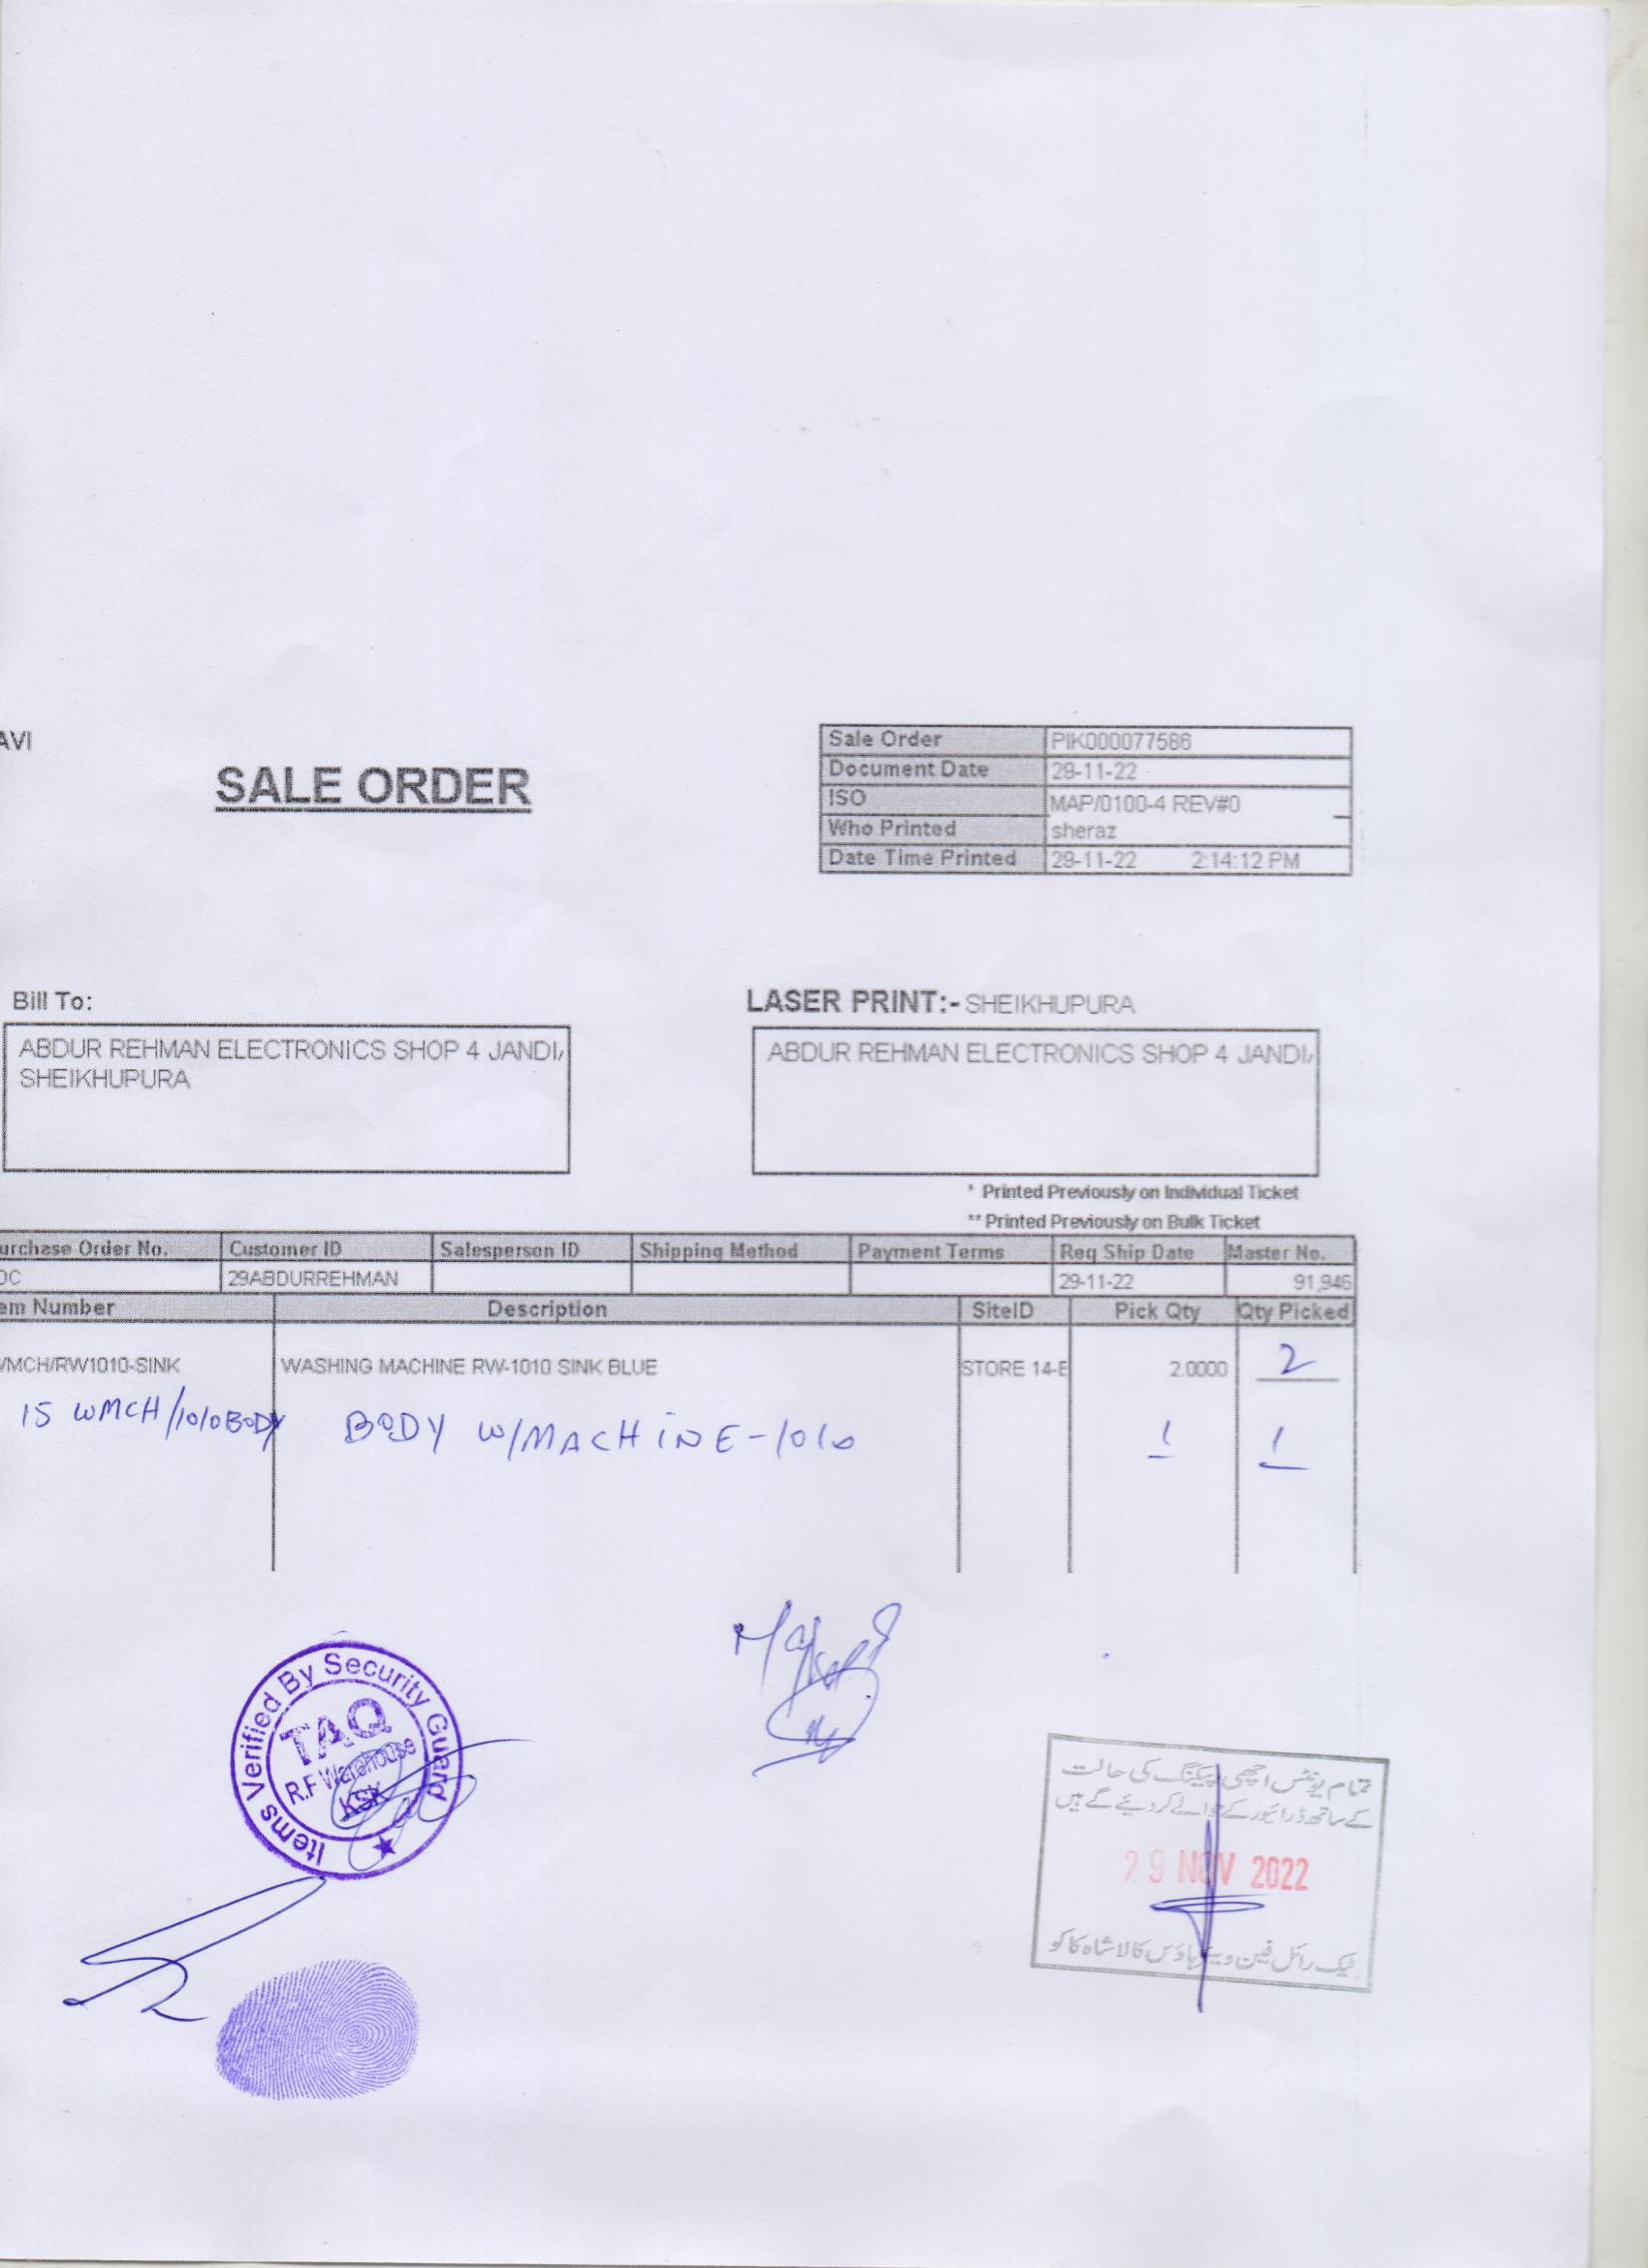 AVI
SALE ORDER
Sale Order PIK000077586
Document Date 29-11-22
ISO MAP/0100-4 REV#0
Who Printed sheraz
Date Time Printed 29-11-22 2:14:12 PM
Bill To:
LASER PRINT:- SHEIKHUPURA
ABDUR REHMAN ELECTRONICS SHOP 4 JANDI
SHEIKHUPURA
ABDUR REHMAN ELECTRONICS SHOP 4 JANDI
* Printed Previously on Individual Ticket
** Printed Previously on Bulk Ticket
urchase Order No. Customer ID Salesperson ID Shipping Method Payment Terms Req Ship Date Master No.
OC 29ABDURREHMAN 29-11-22 91,946
em Number Description SiteID Pick Qty Qty Picked
/MCH/RW1010-SINK WASHING MACHINE RW-1010 SINK BLUE STORE 14-E 2.0000 2
15 WMCH/1010BODY BODY W/MACHINE-1010 1 1
Items Verified By Security Guard
TAQ
R.F Warehouse
KSK
تمام یونٹس اچھی پیکنگ کی حالت
کے ساتھ ڈرائیور کے حوالے کر دیئے گئے ہیں
29 NOV 2022
ٹیک رائل فین ویئر ہاؤس کالا شاہ کاکو